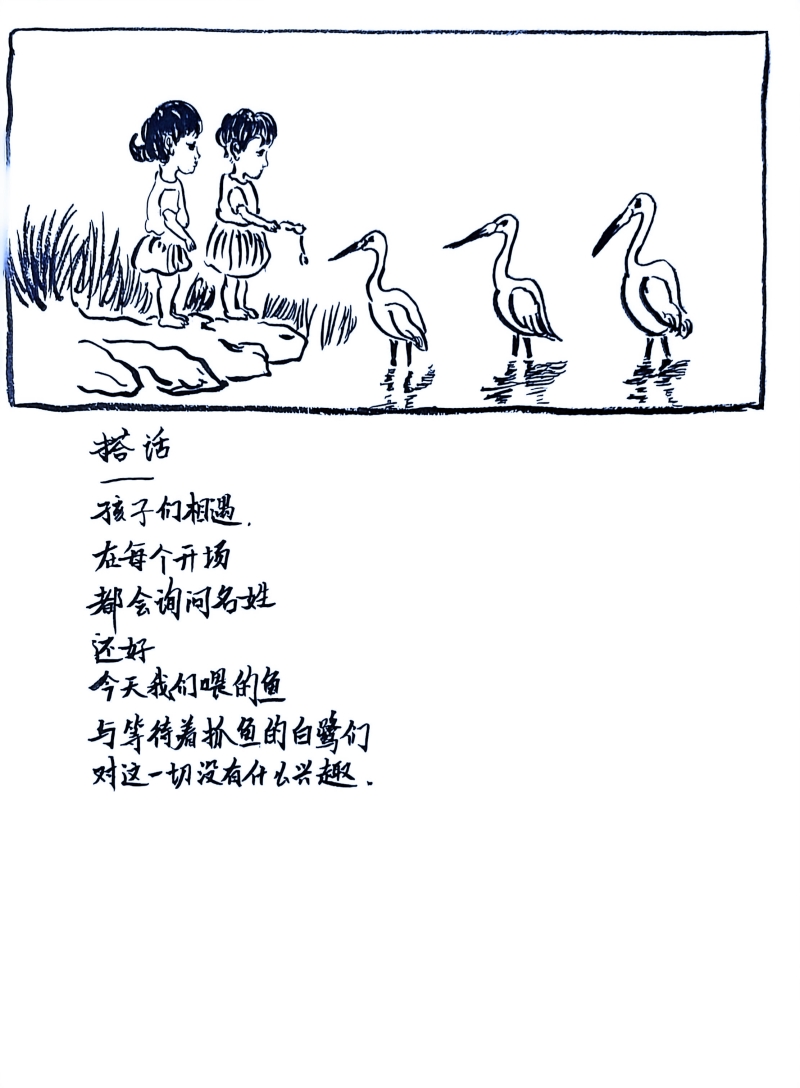 搭话
孩子们相遇.
在每个开场
都会询问名姓
还好
今天我们喂的鱼
与等待着抓鱼的白鹭们
对这一切没有什么兴趣.